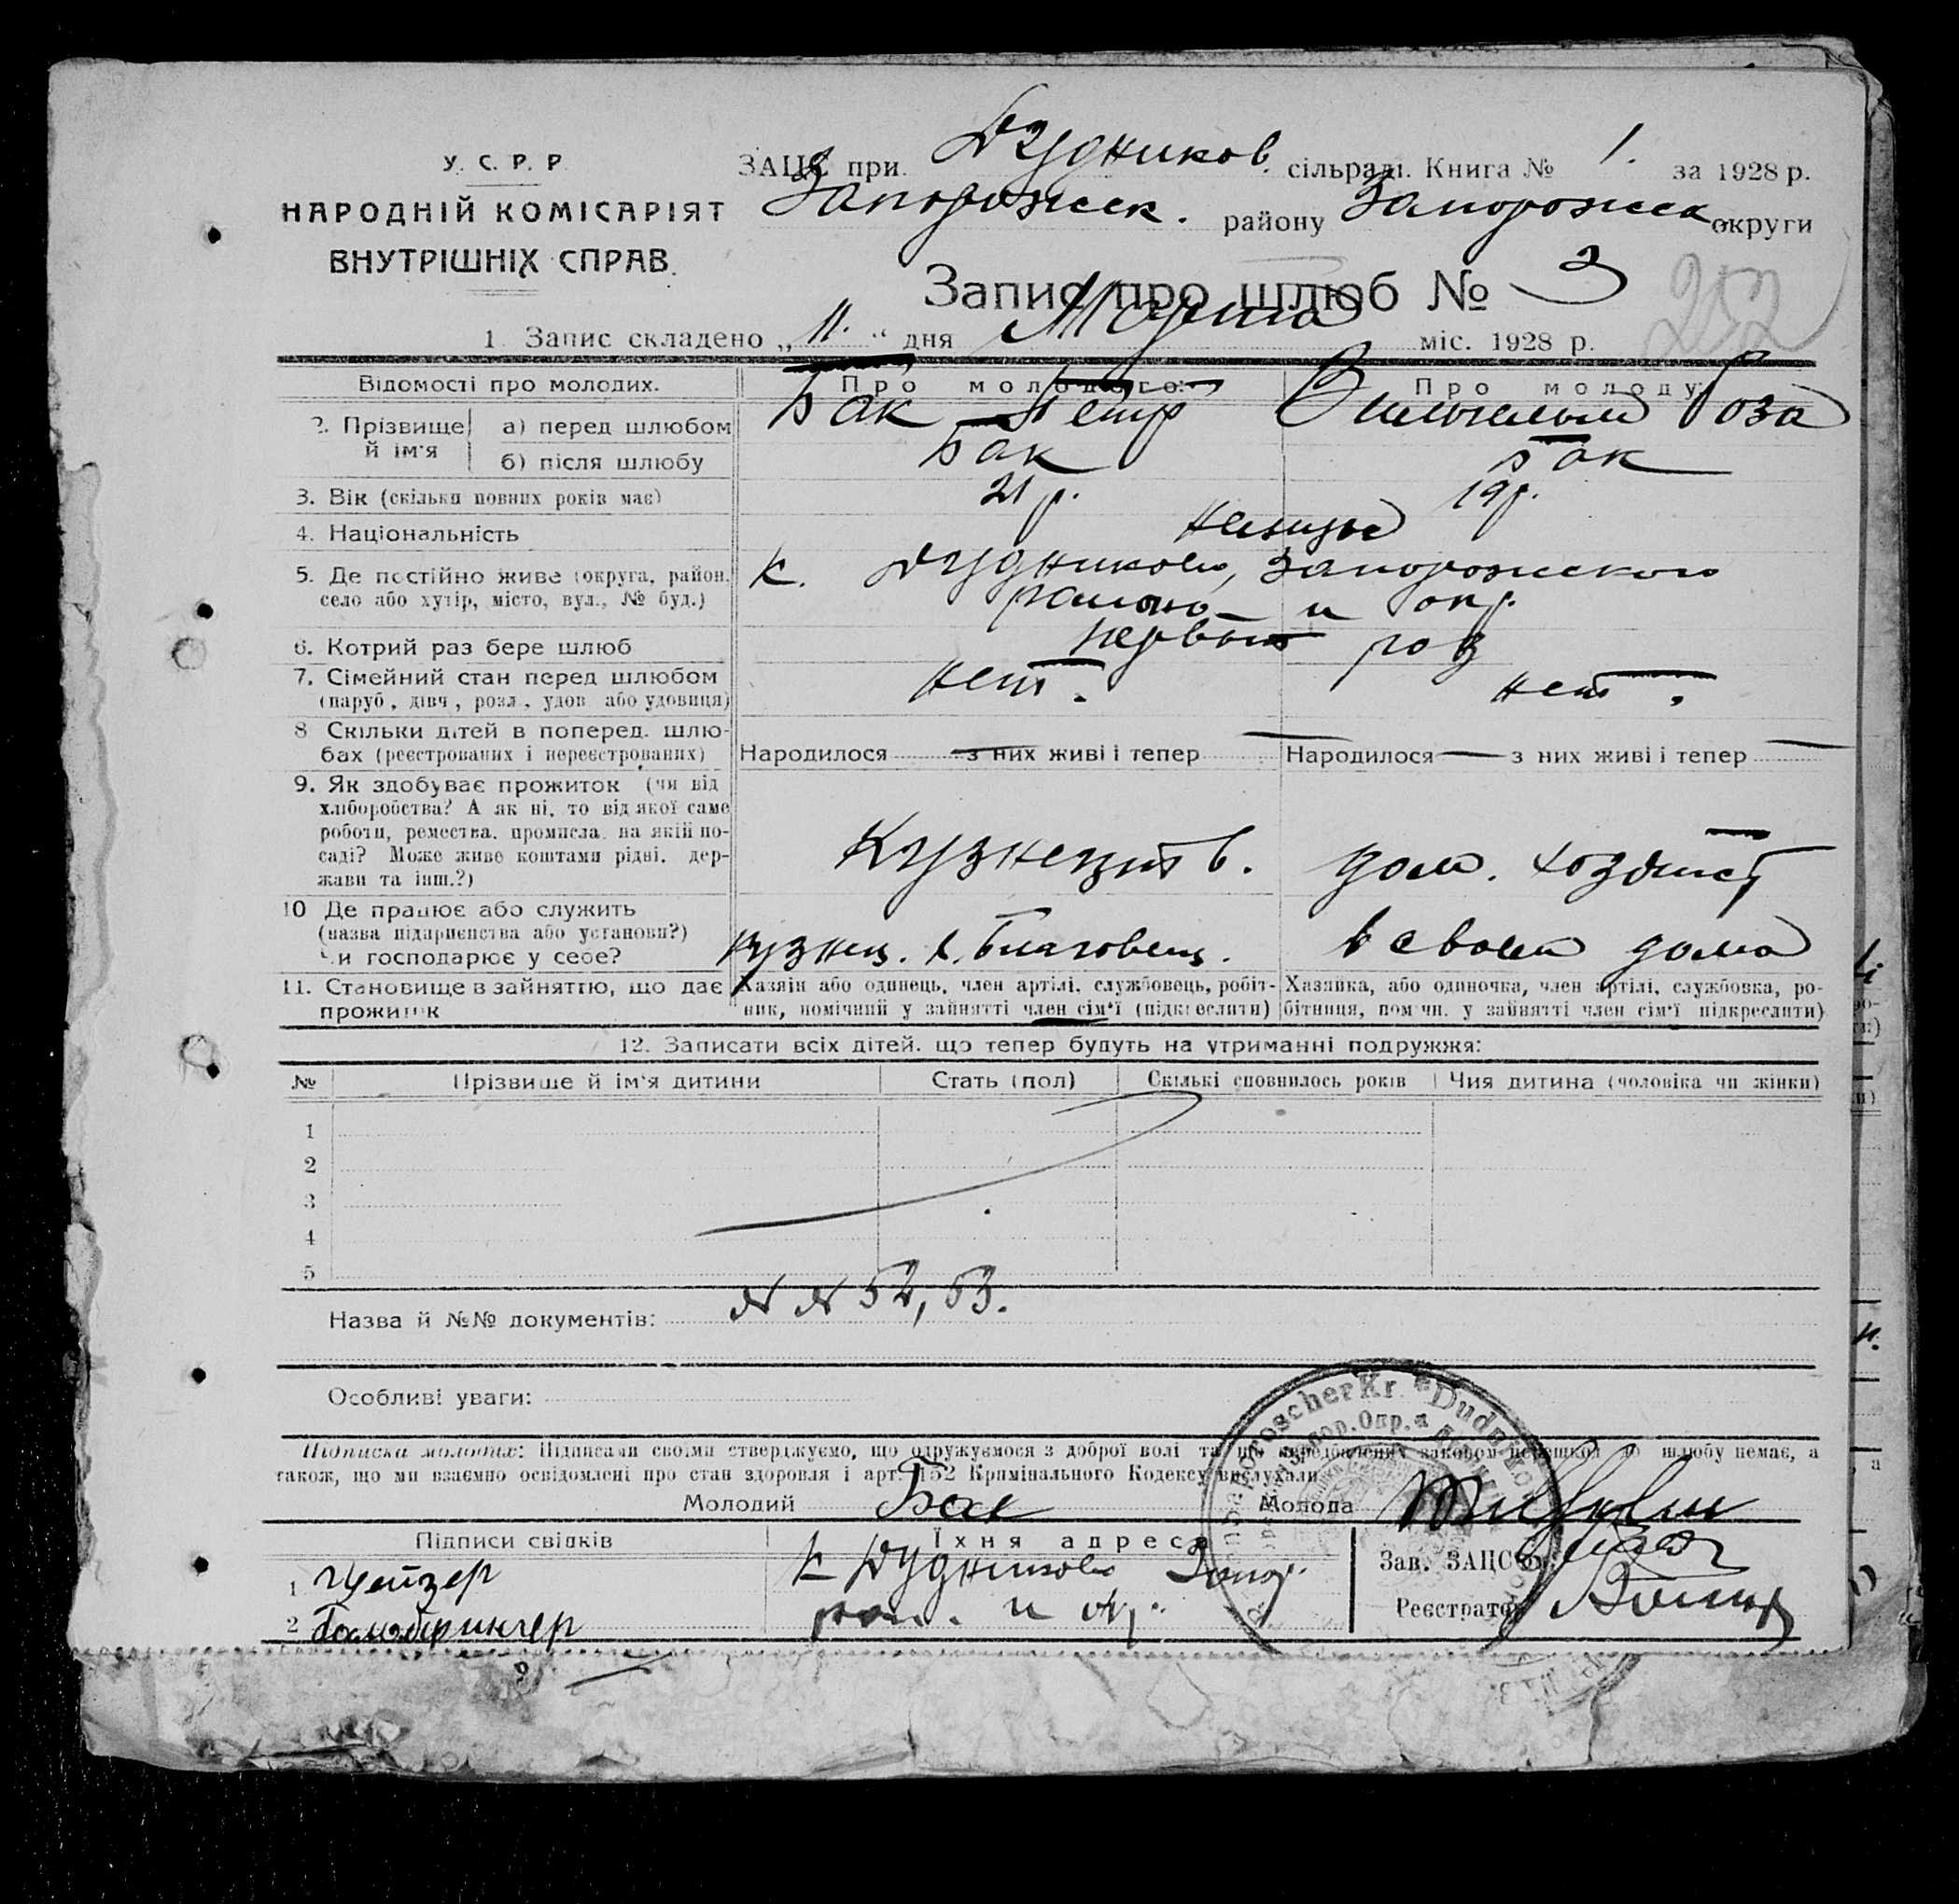 У. С. Р. Р
НАРОДНІЙ КОМІСАРІЯТ
ВНУТРІШНІХ СПРАВ.
ЗАЦС при Дудников. сільраді. Книга № 1. за 1928 р.
Запорожск. району Запорожск округи
Запис про шлюб № 3
252
1. Запис складено „ 11. “ дня Марта міс. 1928 р.
Відомості про молодих. Про молодого: Про молоду:
2. Прізвище й ім'я а) перед шлюбом Бак Петр Вильгельм Роза
б) після шлюбу Бак Бак
3. Вік (скільки повних років має) 21 р. 19 р.
4. Національність немцы
5. Де постійно живе (округа, район, к. Дудниково, Запорожского
село або хутір, місто, вул., № буд.) района и окр.
6. Котрий раз бере шлюб первый раз
7. Сімейний стан перед шлюбом нет. нет.
(паруб., дівч., розл., удов. або удовиця)
8 Скільки дітей в поперед. шлю-
бах (реєстрованих і нереєстрованих) Народилося — з них живі і тепер — Народилося — з них живі і тепер —
9. Як здобуває прожиток (чи від
хліборобства? А як ні, то від якої саме
роботи, ремества, промисла, на якій по-
саді? Може живе коштами рідні, дер-
жави та інш.?)
Кузнецтв. дом. хозяйст
10 Де працює або служить
(назва підприємства або установи?)
чи господарює у себе?
кузнец. к. Благовещ. в своем доме
11. Становище в занятті, що дає
прожиток
Хазяїн або одинець, член артілі, службовець, робіт-
ник, помічний у зайнятті член сім'ї (підкреслити)
Хазяйка, або одиночка, член артілі, службовка, ро-
бітниця, помічн. у зайнятті член сім'ї підкреслити)
12. Записати всіх дітей, що тепер будуть на утриманні подружжя:
№ Прізвище й ім'я дитини Стать (пол) Скількі сповнилось років Чия дитина (чоловіка чи жінки)
1
2
3
4
5
Назва й №№ документів: N N 52, 53.
Особливі уваги:
Підписка молодих: Підписами своїми стверджуємо, що одружуємося з доброї волі та що передбачених законом перешкод до шлюбу немає, а
також, що ми взаємно освідомлені про стан здоровля і арт. 152 Кримінального Кодексу вислухали
Молодий Бак Молода Wilhelm
Підписи свідків Їхня адреса
1 Цейзер к Дудниково Запор. Зав. ЗАЦС'ом
2 рай. и окр. Реєстратор